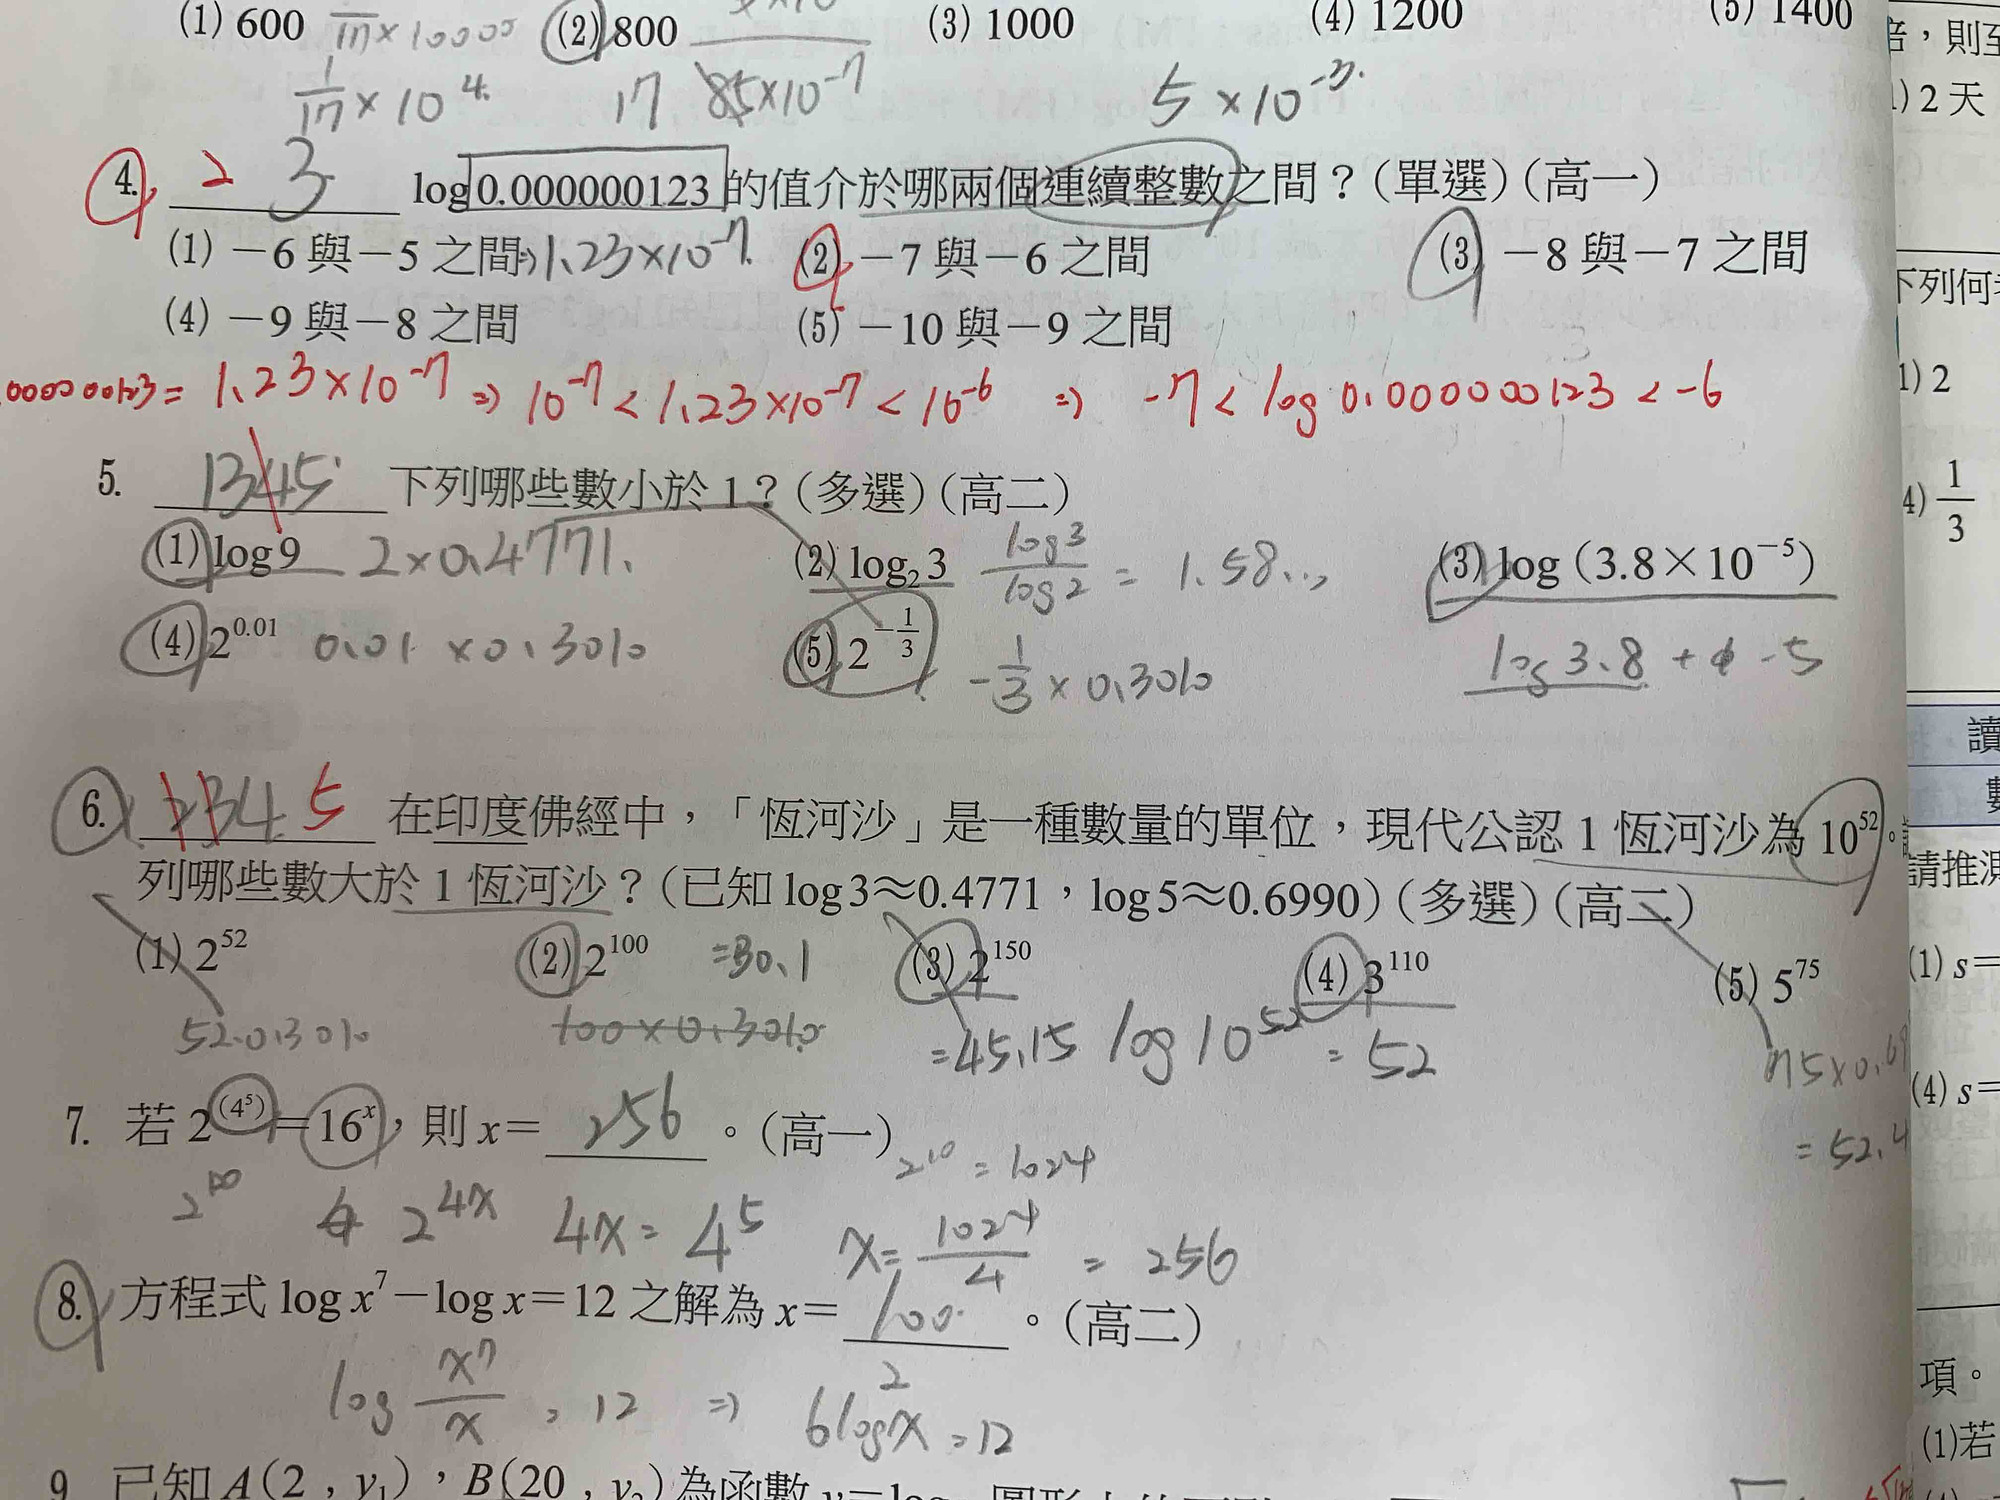 (1) 600 (2) 800 (3) 1000 (4) 1200 (5) 1400
1/17 × 10000
1/17 × 10^4. 17 85×10^-7 5×10^-3.
4. 2 3 log0.000000123的值介於哪兩個連續整數之間？(單選)(高一)
(1) －6 與－5 之間 ⇒1.23×10^-7. (2) －7 與－6 之間 (3) －8 與－7 之間
(4) －9 與－8 之間 (5) －10 與－9 之間
00000 00123= 1.23×10^-7 ⇒ 10^-7 < 1.23×10^-7 < 10^-6 ⇒ -7 < log 0.000000123 < -6
5. 1345 下列哪些數小於 1？(多選)(高二)
(1) log9 2×0.4771. (2) log₂3 log3/log2 = 1.58... (3) log (3.8×10^－5)
(4) 2^0.01 0.01 × 0.3010 (5) 2^－1/3 -1/3 × 0.3010 log 3.8 + -5
6. 234 5 在印度佛經中，「恆河沙」是一種數量的單位，現代公認 1 恆河沙為 10^52。
列哪些數大於 1 恆河沙？(已知 log3≈0.4771，log5≈0.6990)(多選)(高二)
(1) 2^52 (2) 2^100 =30.1 (3) 2^150 (4) 3^110 (5) 5^75
52.0.3010 100×0.3010 =45.15 log 10^52 = 52 75×0.69
= 52.4
7. 若 2^(4^5)＝16^x，則 x＝ 256 。(高一) 2^10 = 1024
2^4x 4x= 4^5 x= 1024/4 = 256
8. 方程式 log x^7－log x＝12 之解為 x＝ 100. 。(高二)
log x^7/x = 12 ⇒ 6logx = 12
2
9. 已知 A(2，y₁)，B(20，y₂)為函數 y＝log
倍，則至
1) 2 天
下列何
1) 2
4) 1/3
讀
數
請推測
(1) s＝
(4) s＝
項。
(1)若